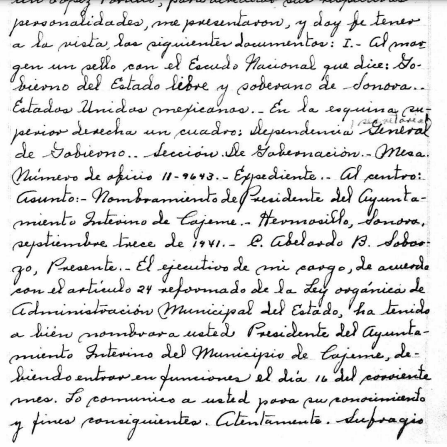 personalidades, me presentaron, y doy fe tener
a la vista, los siguientes documentos: I.- Al mar
gen un sello con el Escudo Nacional que dice: Go-
bierno del Estado libre y soberano de Sonora.-
Estados Unidos mexicanos.- En la esquina su-
perior derecha un cuadro: Dependencia secretaria General
de Gobierno.- Sección. De Gobernación.- Mesa.
Número de oficio 11-9643.- Expediente.- Al centro:
Asunto:- Nombramiento de Presidente del Ayunta-
miento Interino de Cajeme.- Hermosillo, Sonora,
septiembre trece de 1941.- C. Abelardo B. Sobar-
zo, Presente.- El ejecutivo de mi cargo, de acuerdo
con el artículo 24 reformado de la Ley orgánica de
Administración Municipal del Estado, ha tenido
a bien nombrar a usted Presidente del Ayunta-
miento Interino del Municipio de Cajeme, de-
biendo entrar en funciones el día 16 del corriente
mes. Lo comunico a usted para su conocimiento
y fines consiguientes. Atentamente. Sufragio